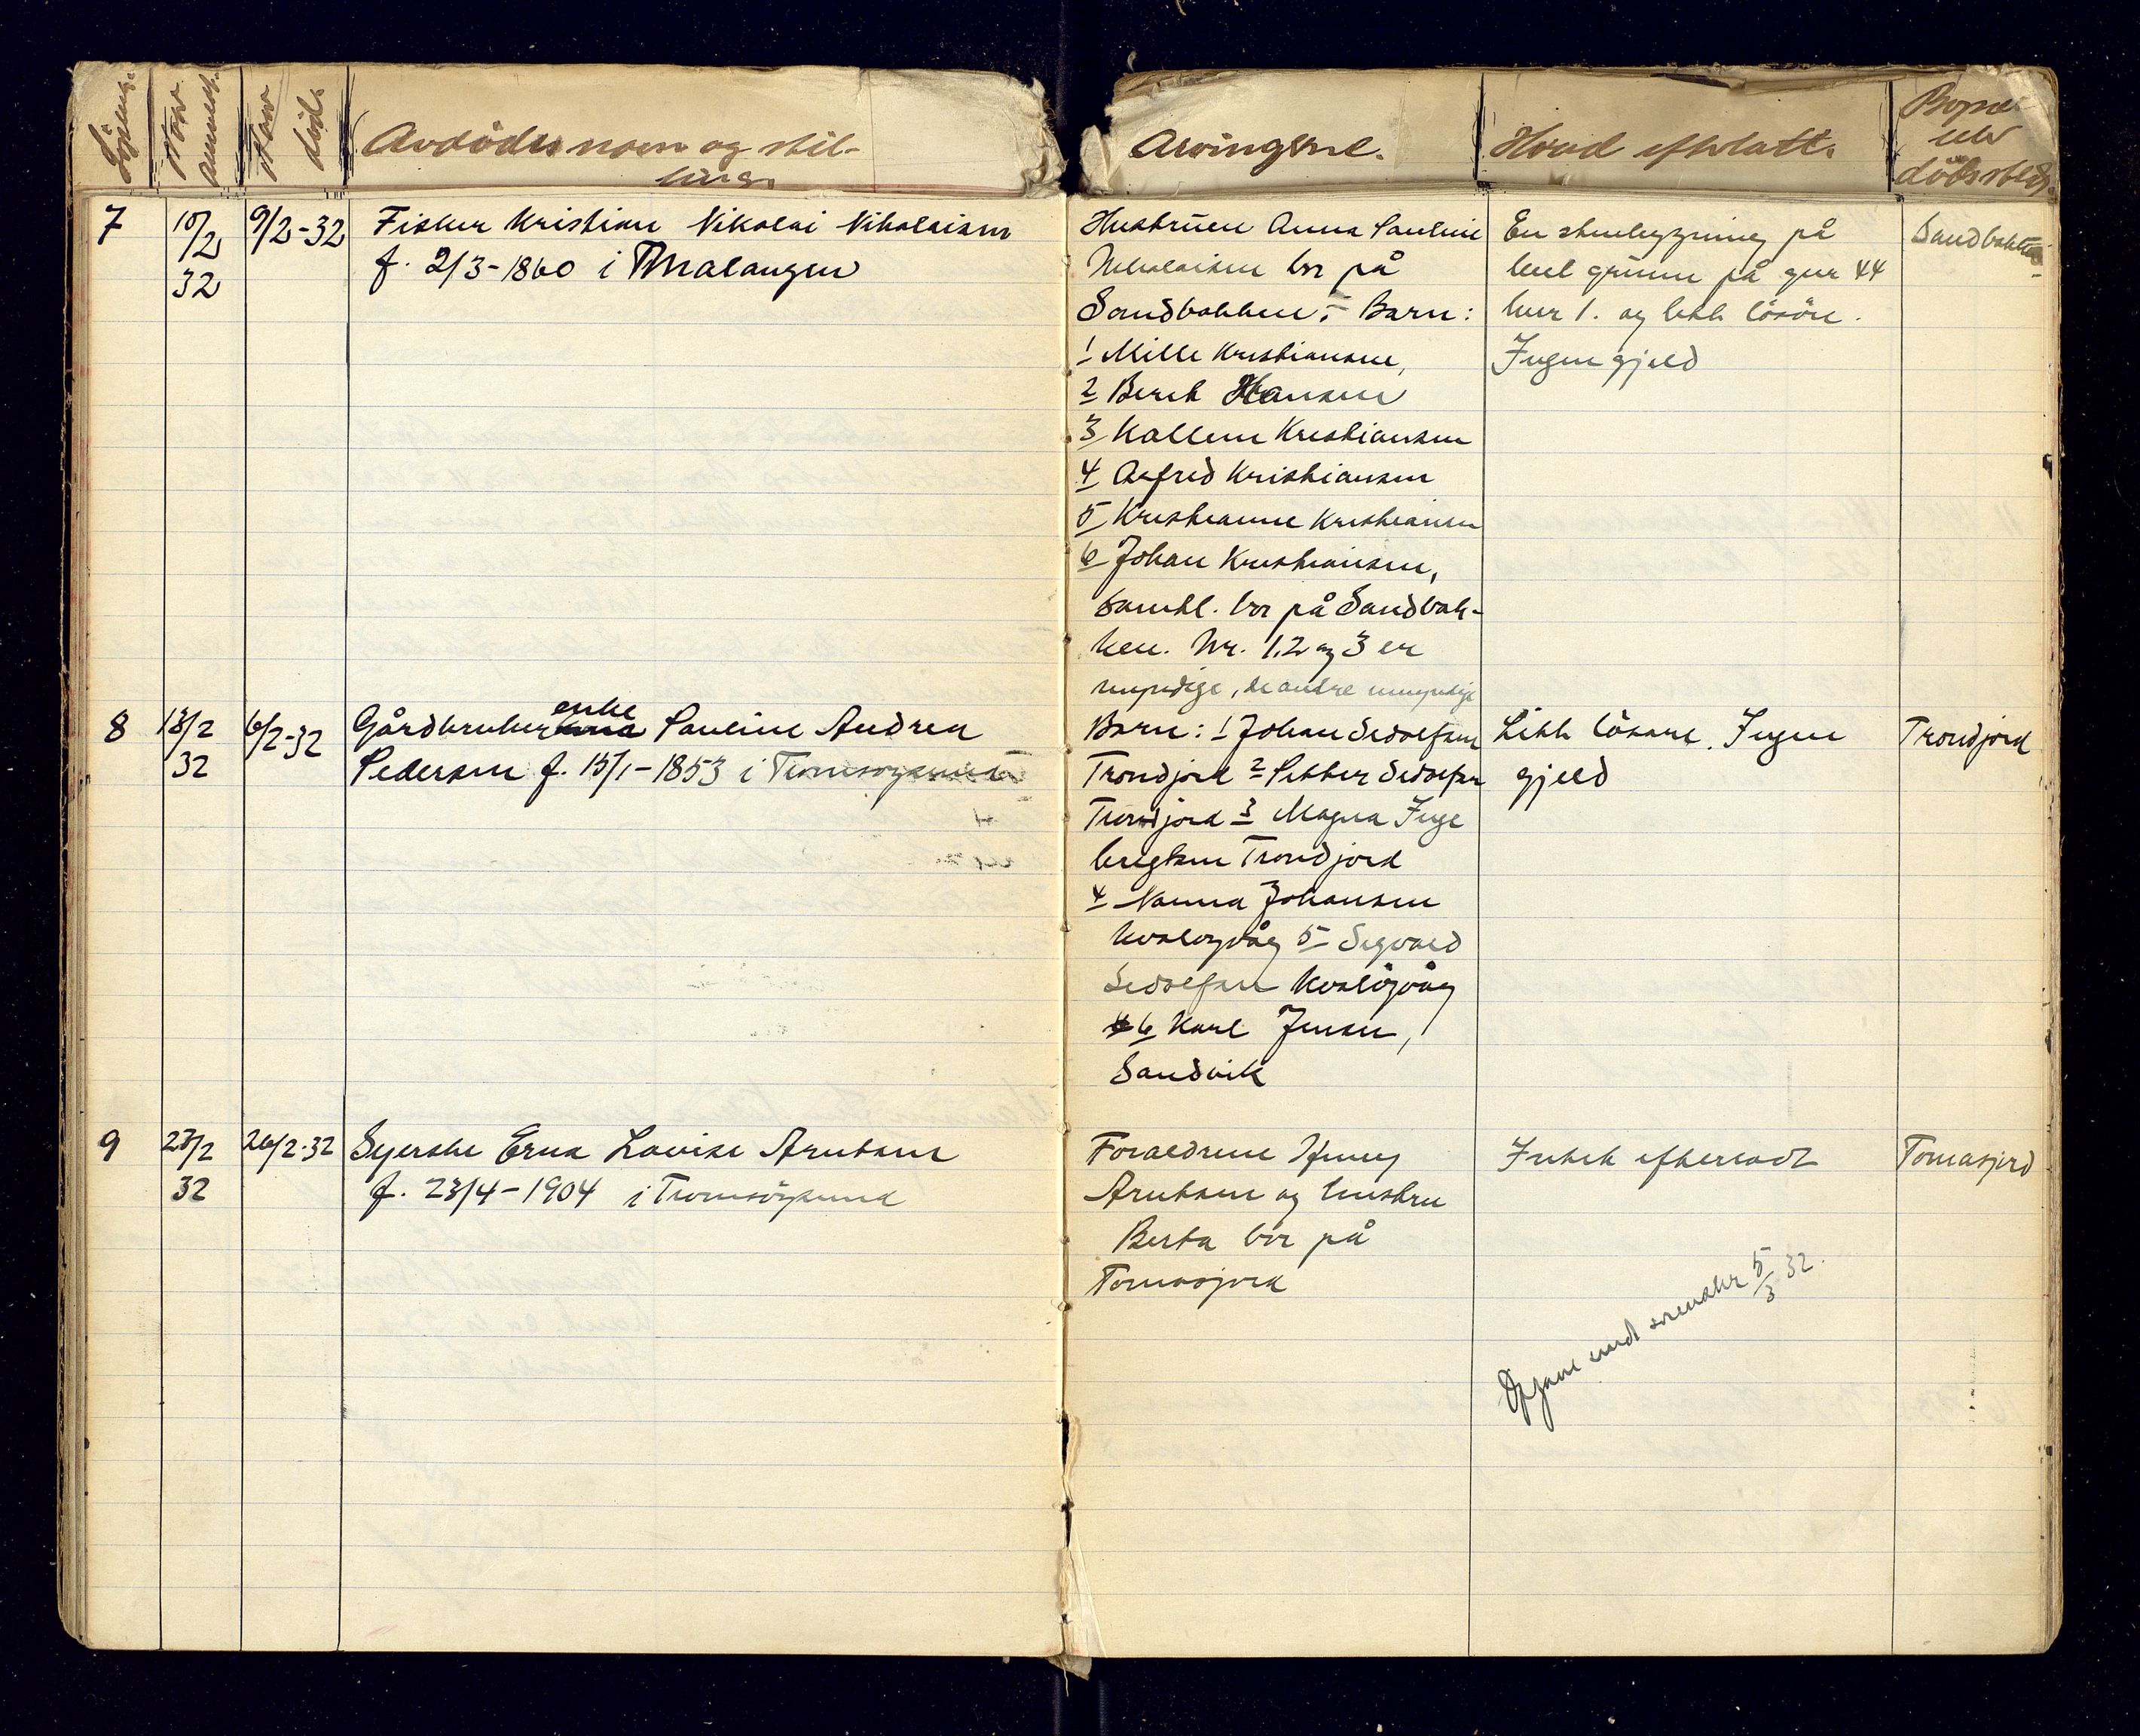 Löpenr. Når anmeldt. Når död. Avdödes navn og stil-
ling.
Arvingene. Hvad efterlatt. Bopæl
eller
dödssted.
7 10/2 9/2-32 Fisker Kristian Nikolai Nikolaisen
32 f. 2/3-1860 i Malangen
Hustruen Anna Pauline
Nikolaisen bor på
Sandbakken. - Barn:
1 Mille Kristiansen,
2 Berit Hansen
3 Kallem Kristiansen
4 Alfred Kristiansen
5 Kristianne Kristiansen
6 Johan Kristiansen,
samtl. bor på Sandbak-
ken. Nr. 1.2 og 3 er
myndige, de andre umyndige
En stuebygning på
leiet grunn på gnr 44
bnr 1. og litt lösöre.
Ingen gjeld
Sandbakken
8 13/2 6/2-32 Gårdbruker enke Pauline Andrea
32 Pedersen f. 15/1-1853 i Tromsöysund
Barn: 1 Johan Sedolfsen
Trondjord 2 Petter Sedolfsen
Trondjord 3 Magna Inge
brigtsen Trondjord
4 Nanna Johansen
Kvalöyvåg 5 Sigvald
Sedolfsen Kvalöyvåg
6 Karl Jensen,
Sandvik
Litt lösöre. Ingen
gjeld
Trondjord
9 27/2 26/2-32 Syerske Erna Lovise Arntsen
32 f. 23/4-1904 i Tromsöysund
Foraeldrene Henry
Arntsen og hustru
Berta bor på
Tomasjord
Intet efterladt
Tomasjord
Opgave med 5/3 32.